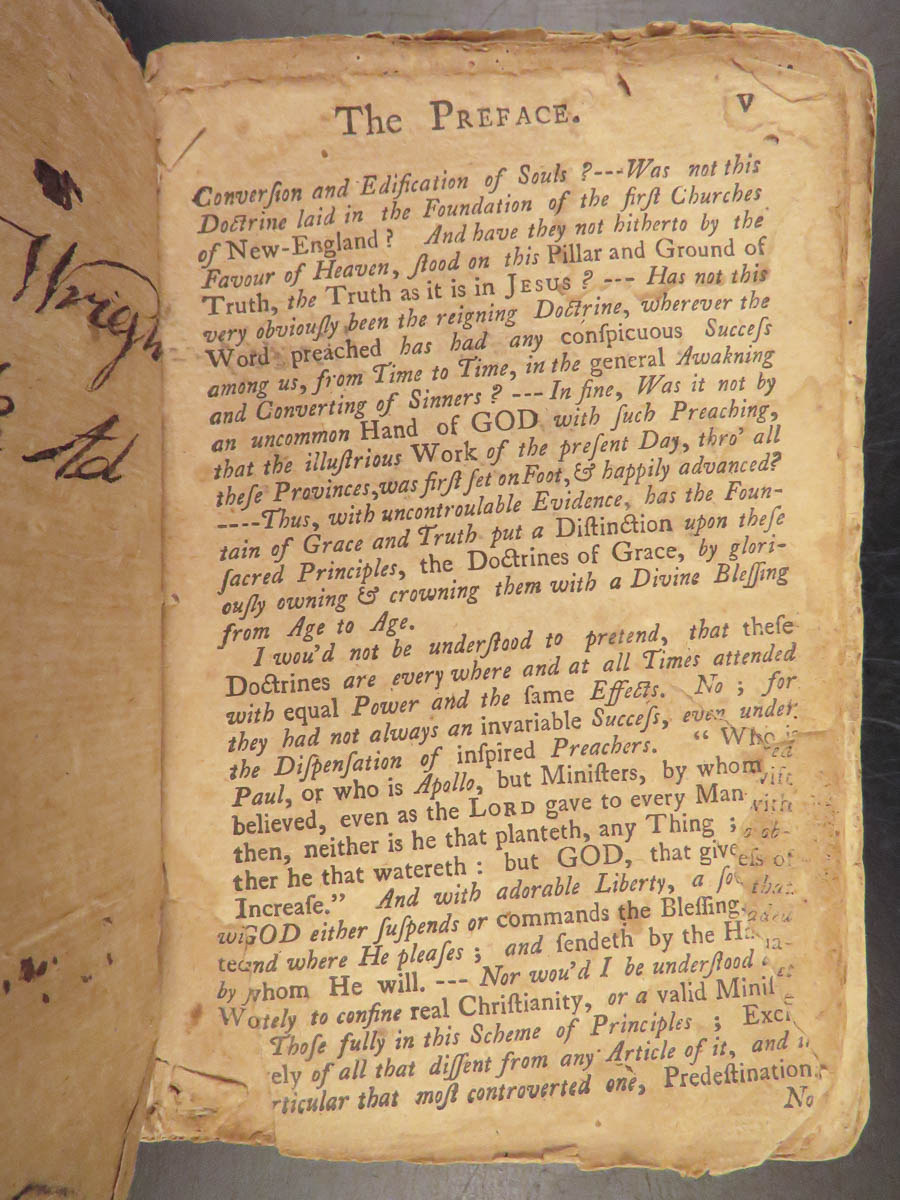 The PREFACE. v
Converſion and Edification of Souls ?---Was not this
Doctrine laid in the Foundation of the firſt Churches
of New-England ? And have they not hitherto by the
Favour of Heaven, ſtood on this Pillar and Ground of
Truth, the Truth as it is in JESUS ? --- Has not this
very obviouſly been the reigning Doctrine, wherever the
Word preached has had any conſpicuous Succeſs
among us, from Time to Time, in the general Awakning
and Converting of Sinners ? ---In fine, Was it not by
an uncommon Hand of GOD with ſuch Preaching,
that the illuſtrious Work of the preſent Day, thro' all
theſe Provinces,was firſt ſet on Foot,& happily advanced?
----Thus, with uncontroulable Evidence, has the Foun-
tain of Grace and Truth put a Diſtinction upon theſe
ſacred Principles, the Doctrines of Grace, by glori-
ouſly owning & crowning them with a Divine Bleſſing
from Age to Age.
I wou'd not be underſtood to pretend, that theſe
Doctrines are every where and at all Times attended
with equal Power and the ſame Effects. No ; for
they had not always an invariable Succeſs, even under
the Diſpenſation of inſpired Preachers. “ Who is
Paul, or who is Apollo, but Miniſters, by whom
believed, even as the LORD gave to every Man
then, neither is he that planteth, any Thing ;
ther he that watereth : but GOD, that give
Increaſe.” And with adorable Liberty, a
GOD either ſuſpends or commands the Bleſſing,
and where He pleaſes ; and ſendeth by the
by whom He will. --- Nor wou'd I be underſtood
to confine real Chriſtianity, or a valid
Thoſe fully in this Scheme of Principles ;
of all that diſſent from any Article of it, and
that moſt controverted one, Predeſtination.
No
Wrigh
Ad